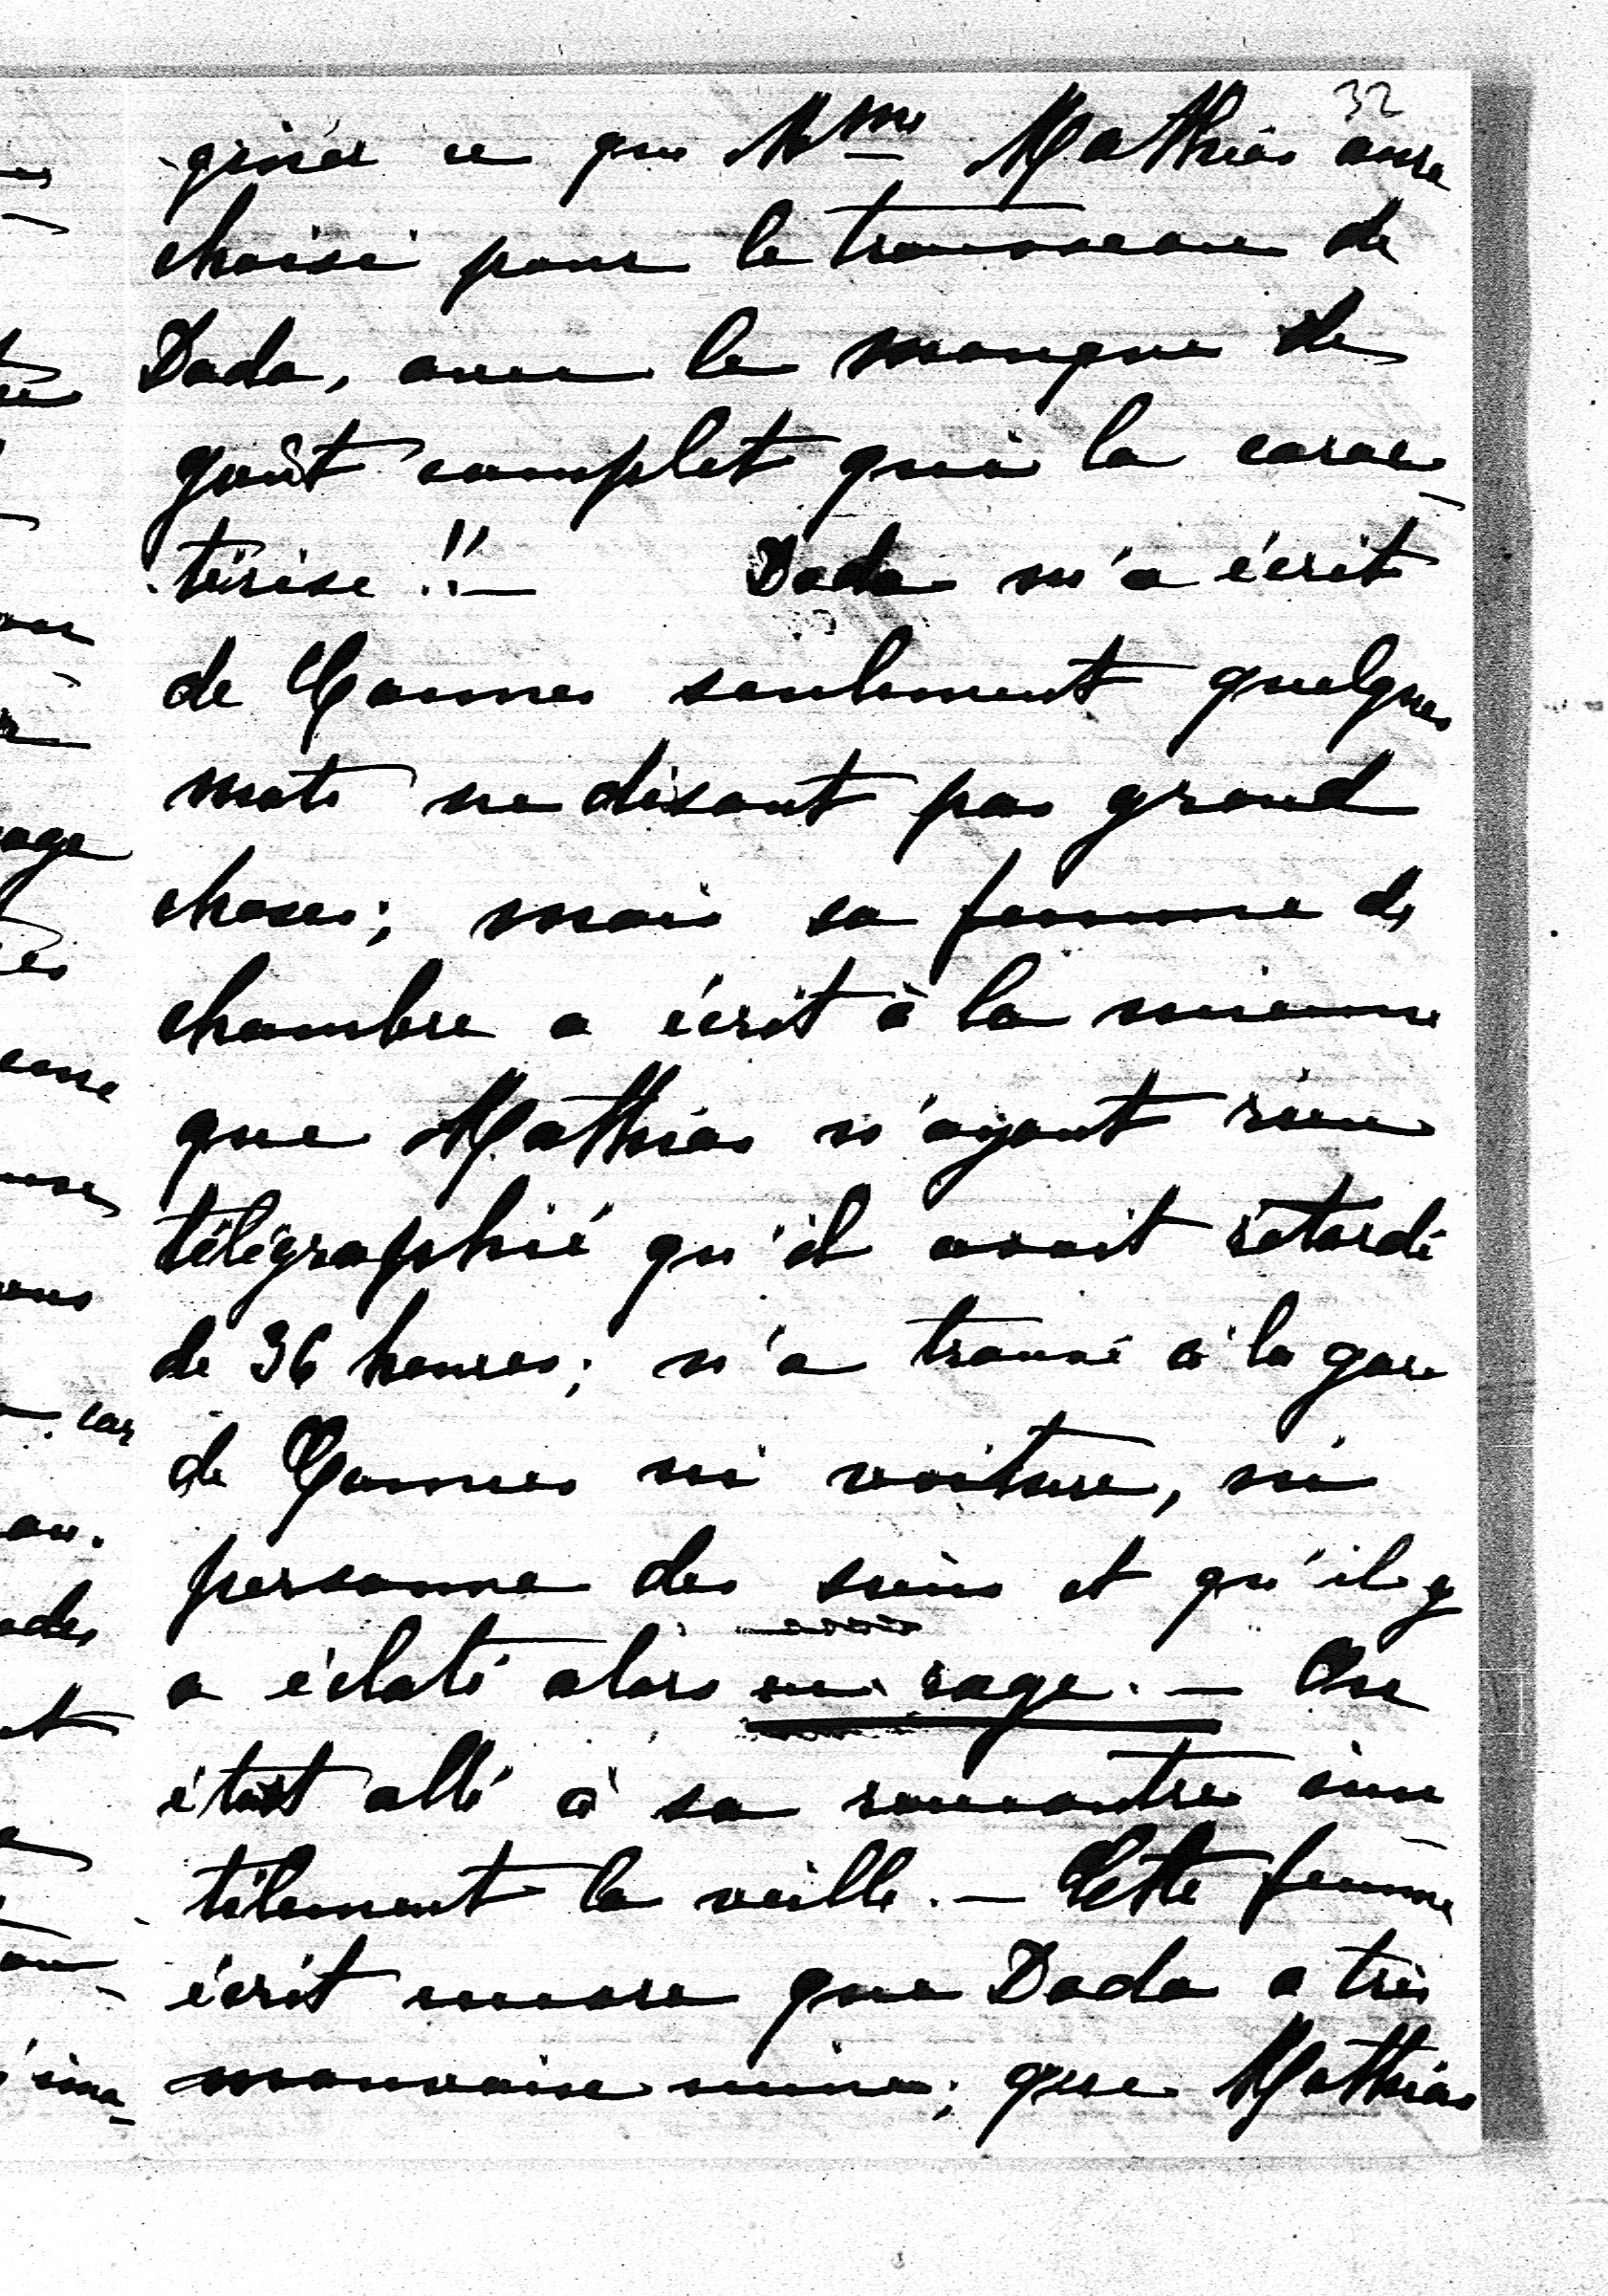 32
giner ce que Mme Mathias aura
choisi pour le trousseau de
Dada, avec le manque de
goût complet qui la carac-
térise !!— Dada m'a écrit
de Cannes seulement quelques
mots ne disant pas grand
choses; mais sa femme de
chambre a écrit à la mienne
que Mathias n'ayant rien
télégraphié qu'il avait retardé
de 36 heures; n'a trouvé à la gare
de Cannes ni voiture, ni
personne des siens et qu'il y
a éclaté alors en rage. — On
était allé à sa rencontre inu-
tilement la veille. — Cette femme
écrit encore que Dada a très
mauvaise mine; que Mathias